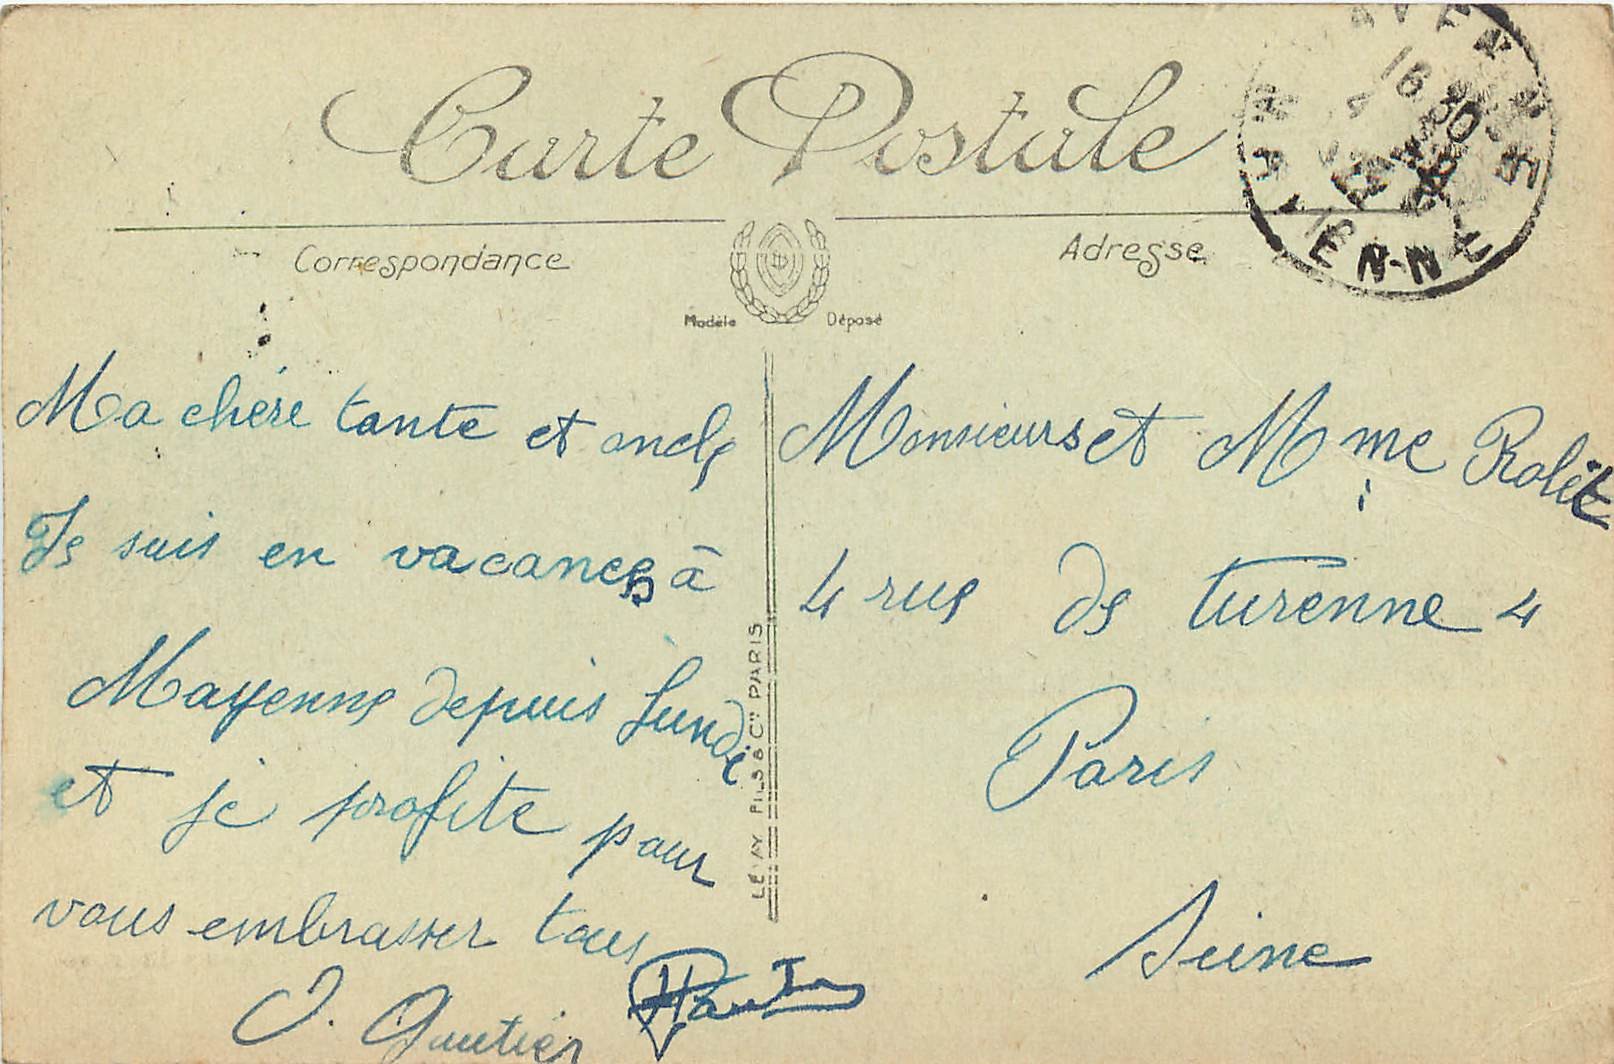 Carte Postale
Correspondance
Adresse
Modèle Déposé
MAYENNE
MAYENNE
16 30
4
Ma chère tante et oncle
Je suis en vacances à
Mayenne depuis Lundi
et je profite pour
vous embrasser tous
J. Gautier
LEVY FILS & Cie PARIS
Monsieurs et Mme Rolet
4 rue de turenne 4
Paris
Seine